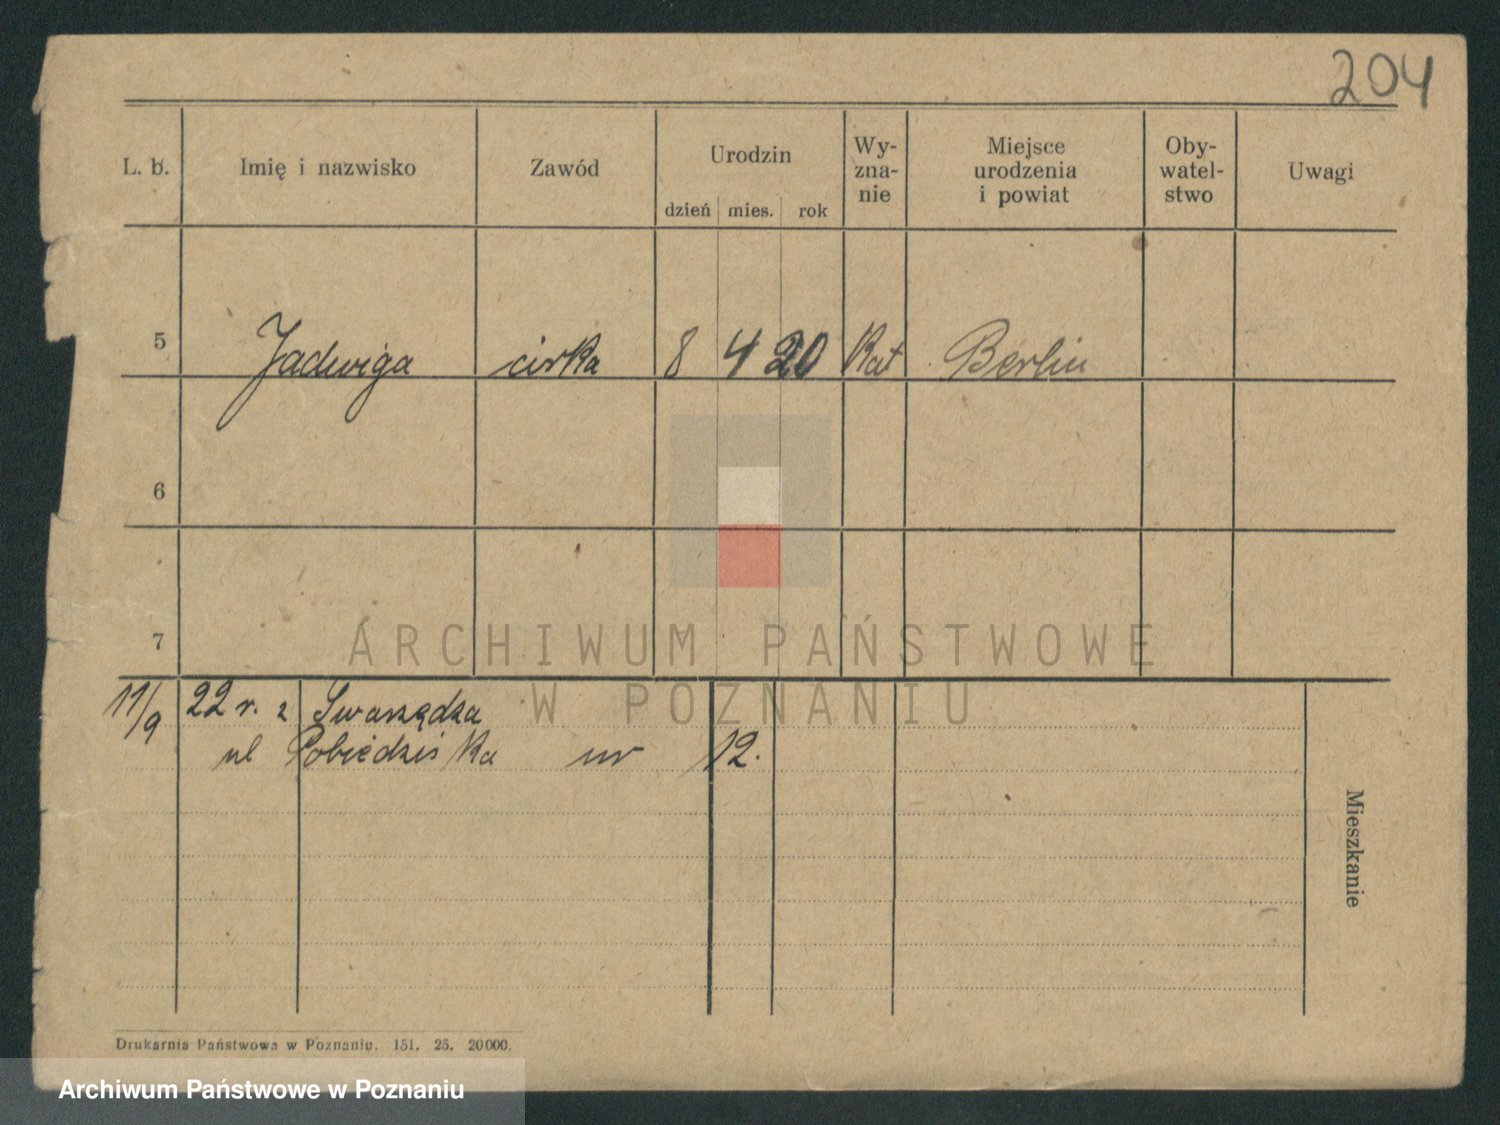 204
L. b. Imię i nazwisko Zawód Urodzin Wy-zna-nie Miejsce urodzenia i powiat Oby-watel-stwo Uwagi
dzień mies. rok
5 Jadwiga cirka 8 4 20 Kat Berlin
6
7
ARCHIWUM PAŃSTWOWE
W POZNANIU
11/9 22 r. z Swarzędza
ul Pobiedziska nr 12.
Mieszkanie
Drukarnia Państwowa w Poznaniu. 151. 25. 20000.
Archiwum Państwowe w Poznaniu